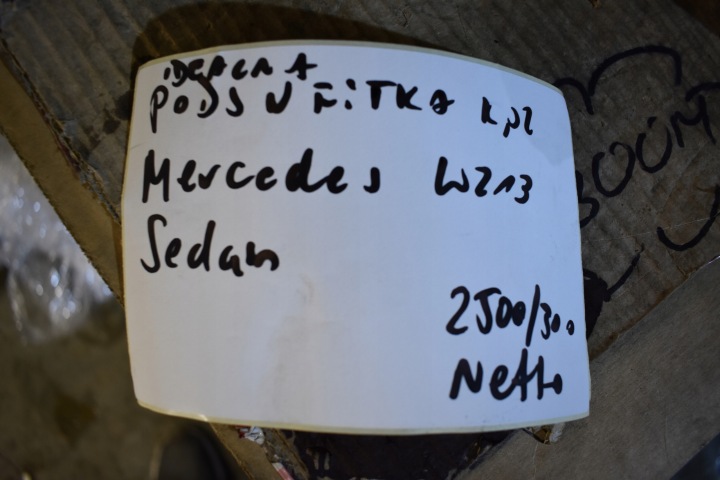 PODSUFITKA kpl
Mercedes W213
Sedan
2500/300
Netto
BOOM